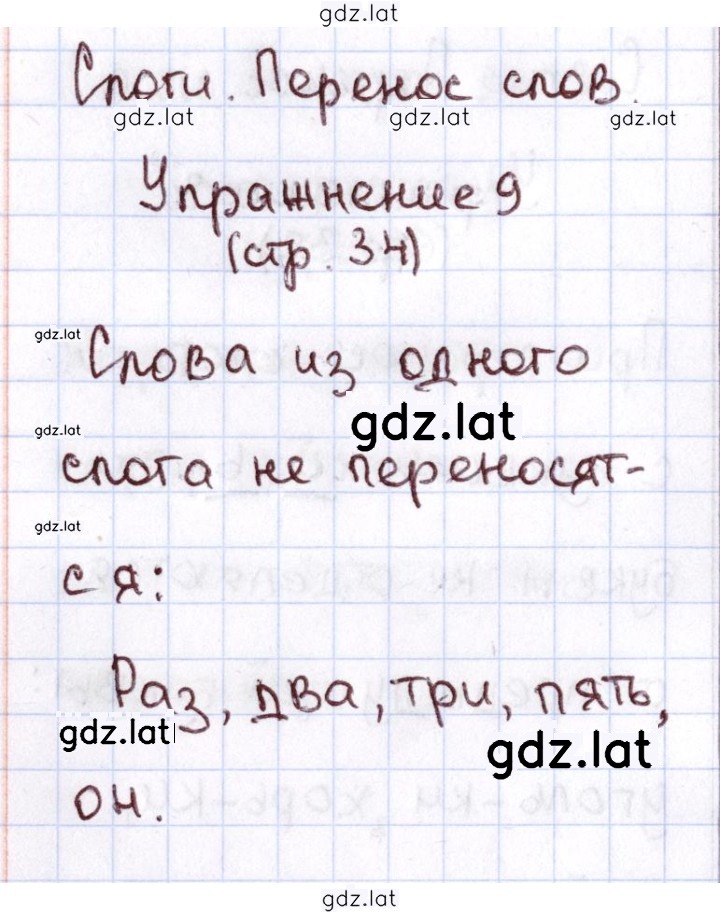 gdz.lat
Слоги. Перенос слов.
gdz.lat gdz.lat gdz.lat
Упражнение 9
(стр. 34)
gdz.lat
Слова из одного
gdz.lat
gdz.lat
слога не переносят-
gdz.lat
ся:
Раз, два, три, пять,
gdz.lat gdz.lat
он.
gdz.lat